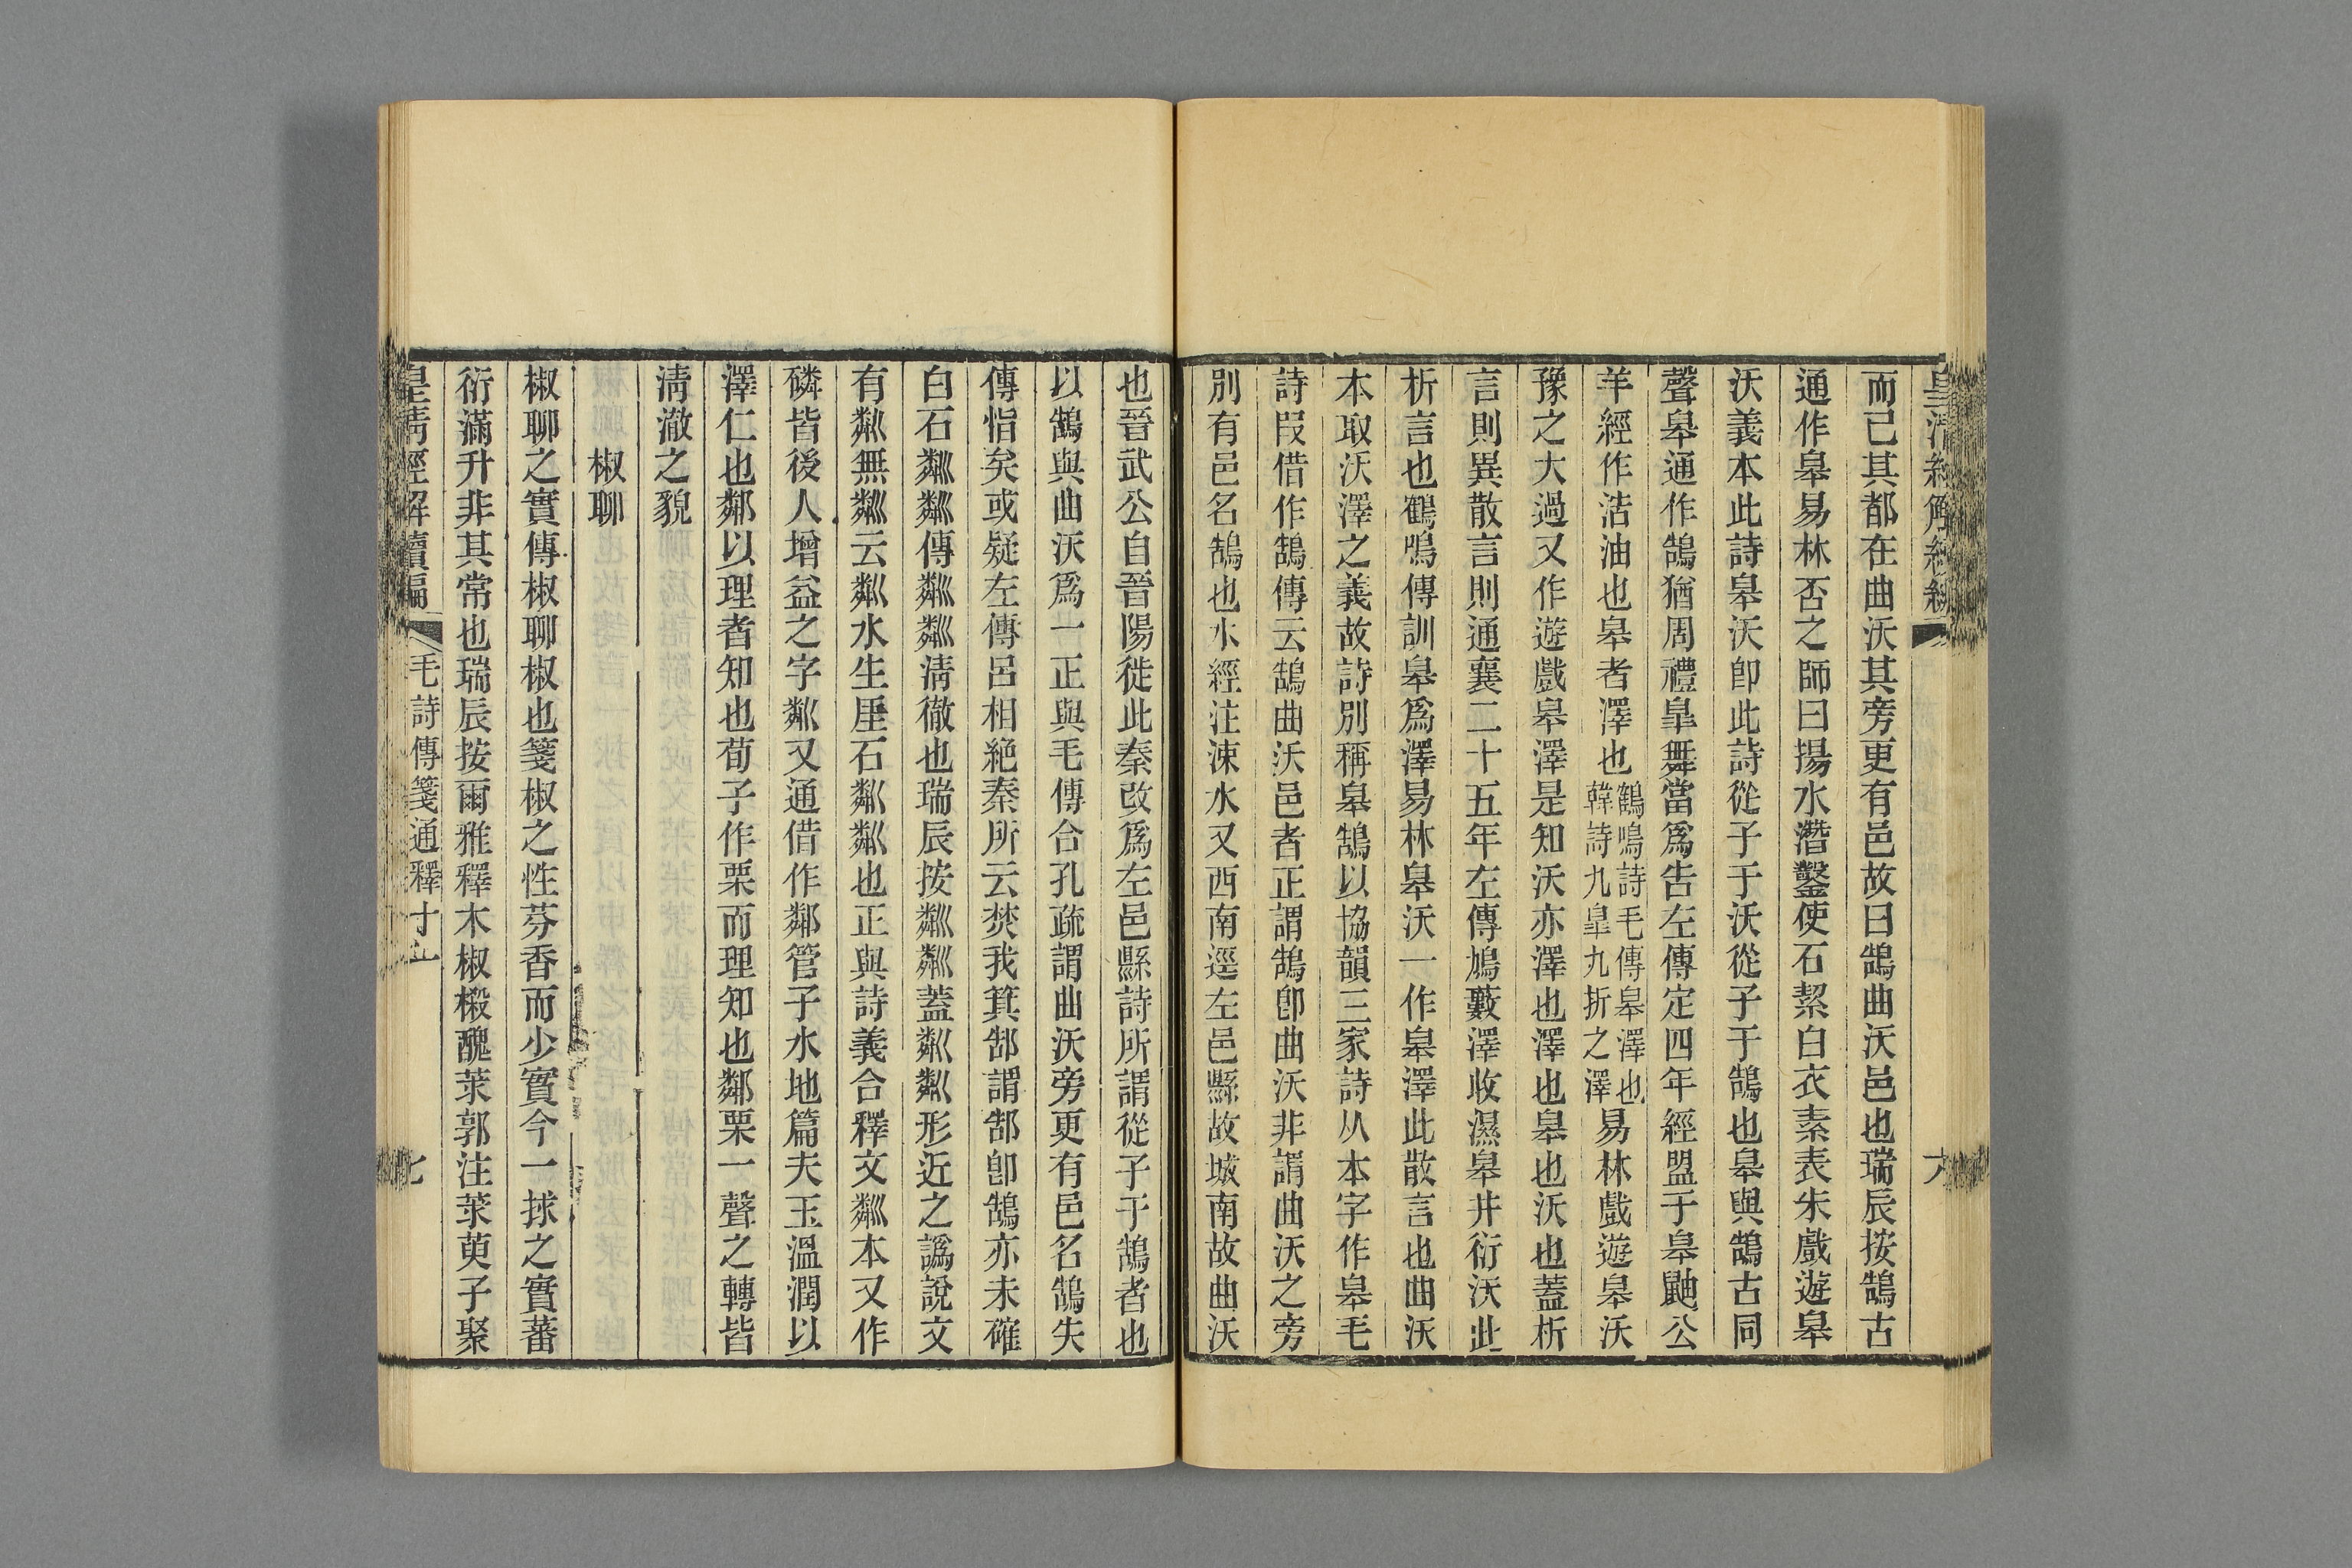 而已其都在曲沃其旁更有邑故曰鵠曲沃邑也瑞辰按鵠古
通作皋易林否之師曰揚水潛鑿使石絜白衣素表朱戲遊皋
沃義本此詩皋沃卽此詩從子于沃從子于鵠也皋與鵠古同
聲皋通作鵠猶周禮皐舞當爲告左傳定四年經盟于皋鼬公
羊經作浩油也皋者澤也鶴鳴詩毛傳皋澤也韓詩九皐九折之澤易林戲遊皋沃
豫之大過又作遊戲皋澤是知沃亦澤也澤也皋也沃也蓋析
言則異散言則通襄二十五年左傳鳩藪澤收濕皋井衍沃此
析言也鶴鳴傳訓皋爲澤易林皋沃一作皋澤此散言也曲沃
本取沃澤之義故詩別稱皋鵠以協韻三家詩从本字作皋毛
詩叚借作鵠傳云鵠曲沃邑者正謂鵠卽曲沃非謂曲沃之旁
別有邑名鵠也水經注涑水又西南逕左邑縣故城南故曲沃
也晉武公自晉陽徙此秦改爲左邑縣詩所謂從子于鵠者也
以鵠與曲沃爲一正與毛傳合孔疏謂曲沃旁更有邑名鵠失
傳恉矣或疑左傳呂相絶秦所云焚我箕郜謂郜卽鵠亦未確
白石粼粼傳粼粼淸徹也瑞辰按粼粼蓋粼粼形近之譌說文
有粼無粼云粼水生厓石粼粼也正與詩義合釋文粼本又作
磷皆後人增益之字粼又通借作鄰管子水地篇夫玉溫潤以
澤仁也鄰以理者知也荀子作栗而理知也鄰栗一聲之轉皆
淸澈之貌
椒聊
椒聊之實傳椒聊椒也箋椒之性芬香而少實今一捄之實蕃
衍滿升非其常也瑞辰按爾雅釋木椒樧醜莍郭注莍萸子聚
皇淸經解續編
毛詩傳箋通釋十五